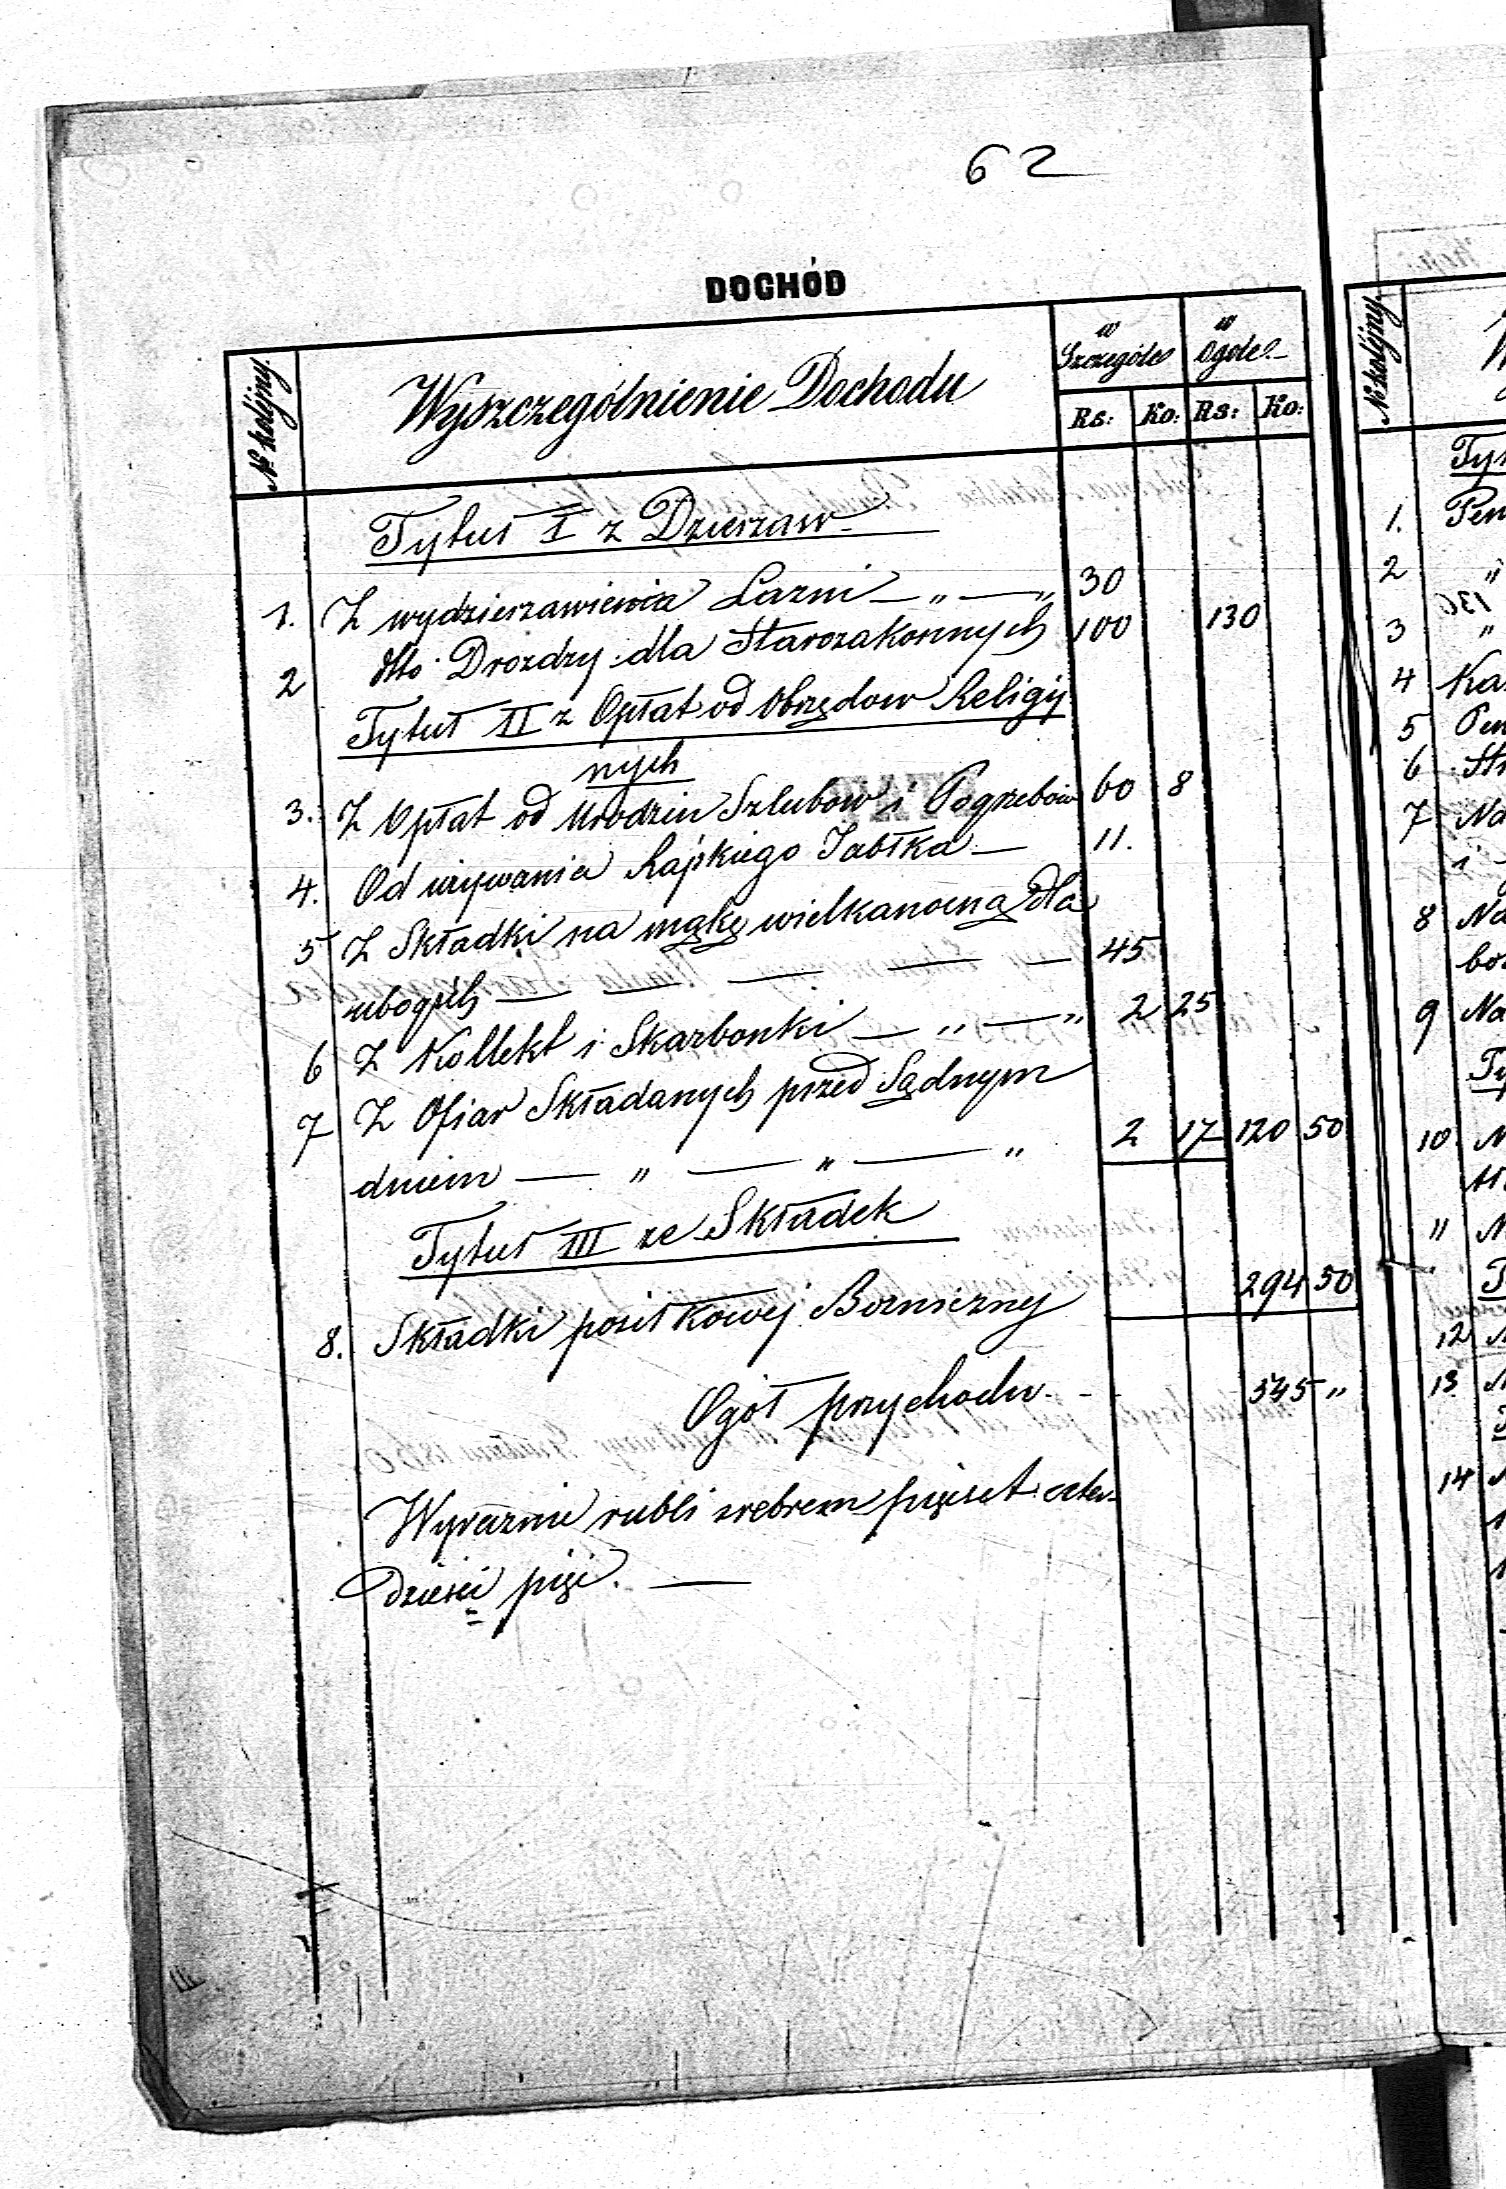 62
DOCHÓD
№ kolejny.
Wyszczególnienie Dochodu
w Szczególe
w Ogóle.
Rs: Ko: Rs: Ko:
Tytuł I z Dzierzaw
1. Z wydzierzawienia Łazni — „ — „ 30
2 dtto Drozdzy dla Starozakonnych 100 130
Tytuł II z Opłat od Obrzędow Religij
nych
3. Z Opłat od Urodzin Szlubów i Pogrzebów 60 8
4. Od używania Rajskiego Jabłka — 11.
5 Z Składki na mąkę wielkanocną dla
ubogich — — — — — 45
6 Z Kollekt i Skarbonki — „ — „ 2 25
7 Z Ofiar Składanych przed Sądnym
dniem — „ — „ — „ 2 17 120 50
Tytuł III ze Składek
8. Składki posiłkowej Bozniczny 294 50
Ogół przychodu - - 545 „
Wyraznie rubli srebrem pięcset czter-
dzieści pięć. —
№ kolejny
Tyt
1. Pen
2 „
3 „
4 Ka
5 Pen
6 St
7 Na
8 Na
9 Na
Ty
10
11
12
13
14